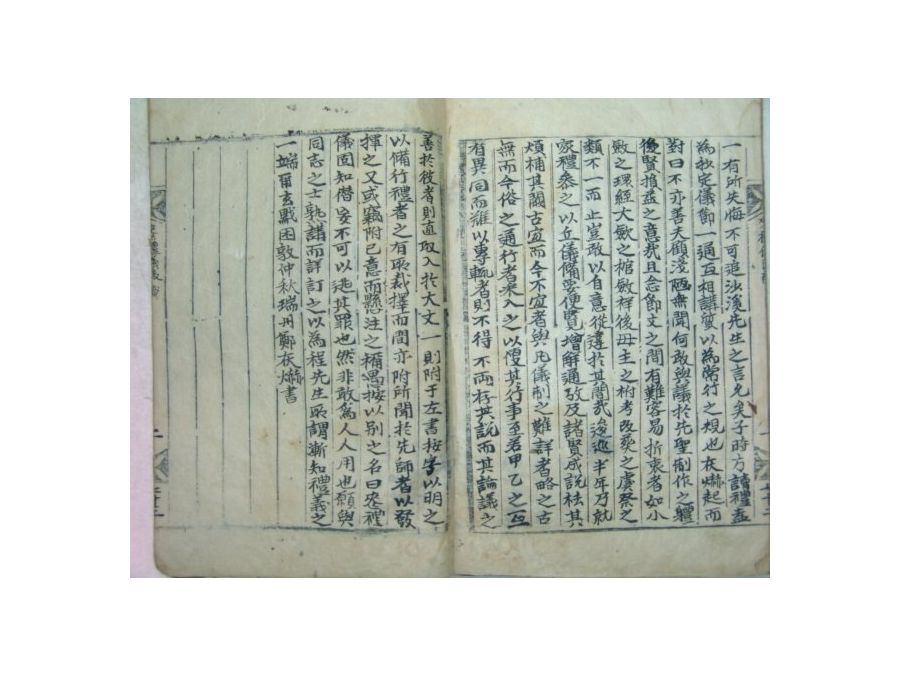 一有所失悔不可追沙溪先生之言允矣子時方讀禮盍
為我定儀節一通互相講質以為常行之規也在爀起而
對曰不亦善夫顧淺陋無聞何敢與議於先聖制作之軆
後賢損益之意哉且念節文之間有難容易折衷者如小
斂之環絰大斂之棺斂祥後母主之祔考改葬之虞祭之
類不一而止豈敢以自意從違於其間哉逡巡半年乃就
家禮參之以丘儀備要便覽增解通攷及諸賢成說祛其
煩補其闕古宜而今不宜者與凡儀制之難詳者略之古
無而今俗之通行者采入之以便其行事至若甲乙之互
有異同而難以專輒者則不得不兩存其說而其論議之
善於彼者則直取入於大文一則附于左書按字以明之
以備行禮者之有所裁擇而間亦附所聞於先師者以發
揮之又或竊附己意而懸注之稱愚按以別之名曰四禮
儀固知僭妄不可以逃其罪也然非敢為人人用也願與
同志之士熟講而詳訂之以為程先生所謂漸知禮義之
一端爾玄黓困敦仲秋瑞州鄭在爀書